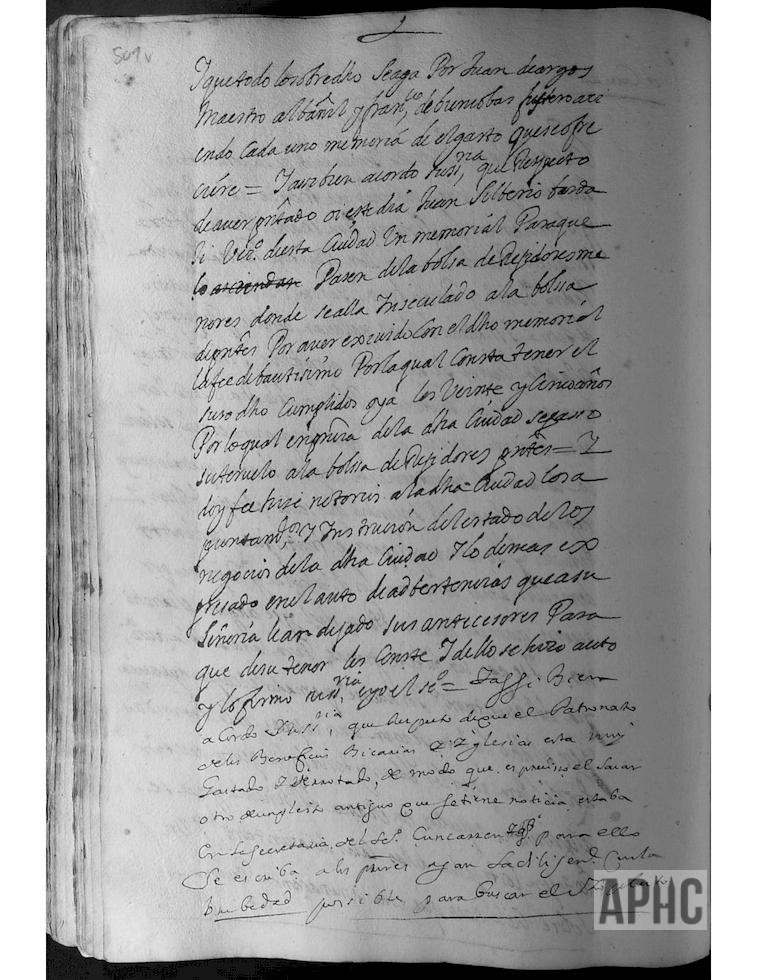 501v
Y que todo lo sobredho se aga Por Juan de argos
Maestro albañil y fran.co de buenobas fustero aci
endo Cada uno memoria de el gasto que se ofre
ciere = Y tambien acordo su ss.ria que Respecto
de auer pntado oi este dia Juan Silberio
Vez.º de esta Ciudad Un memorial Para que
lo Pasen de la bolsa de Regidores me
nores donde se alla Inseculado a la bolsa
de Por auer exiuido Con el dho memorial
la fee de bautismo Por la qual Consta tener el
suso dho Cumplidos oy a los Veinte y Cinco años
Por lo qual en de la dha Ciudad se passo
su teruelo a la bolsa de Regidores = Y
doy fee hice notorio a la dha Ciudad los a
y Instrucion del estado de los
negocios de la dha Ciudad Y lo demas ex
presado en el auto de adbertencias que a su
Señoria le an dejado sus antecesores Para
que de su tenor les Conste Y de llo se hizo auto
y lo firmo su ss.ria e yo el se.º = Y assi Bien
acordo Su ss.ria que Respeto de que el Patronato
de los Beneficios Bicarias Y Yglesias esta mui
Gastado Y derrotado, de modo que es preciso el Sacar
otro de antiguo que se tiene noticia estaba
en la Secretaria del Se.º para ello
Se escriba a los agan la dilijen.ª Con la
brebedad posible para buscar el
APHC